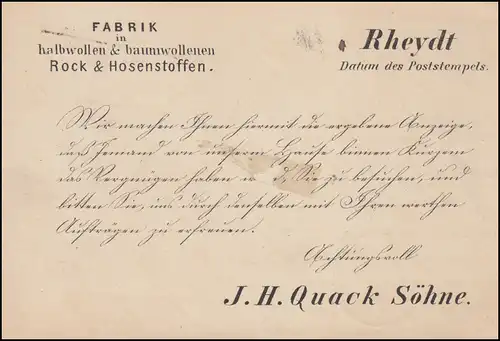 FABRIK
in
halbwollen & baumwollenen
Rock & Hosenstoffen.
Rheydt
Datum des Poststempels.
Wir machen Ihnen hiermit die ergebene Anzeige,
daß Jemand von unserm Hause binnen Kurzem
das Vergnügen haben w d, Sie zu besuchen, und
bitten Sie, uns durch denselben mit Ihren werthen
Aufträgen zu erfreuen.
Achtungsvoll
J. H. Quack Söhne.